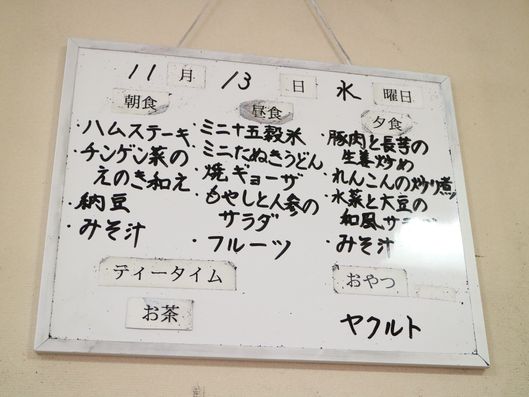 11月13日水曜日
朝食
・ハムステーキ
・チンゲン菜の
えのき和え
・納豆
・みそ汁
昼食
・ミニ十五穀米
・ミニたぬきうどん
・焼ギョーザ
・もやしと人参の
サラダ
・フルーツ
夕食
・豚肉と長芋の
生姜炒め
・れんこんの炒り煮
・水菜と大豆の
和風サラダ
・みそ汁
ティータイム
お茶
おやつ
ヤクルト